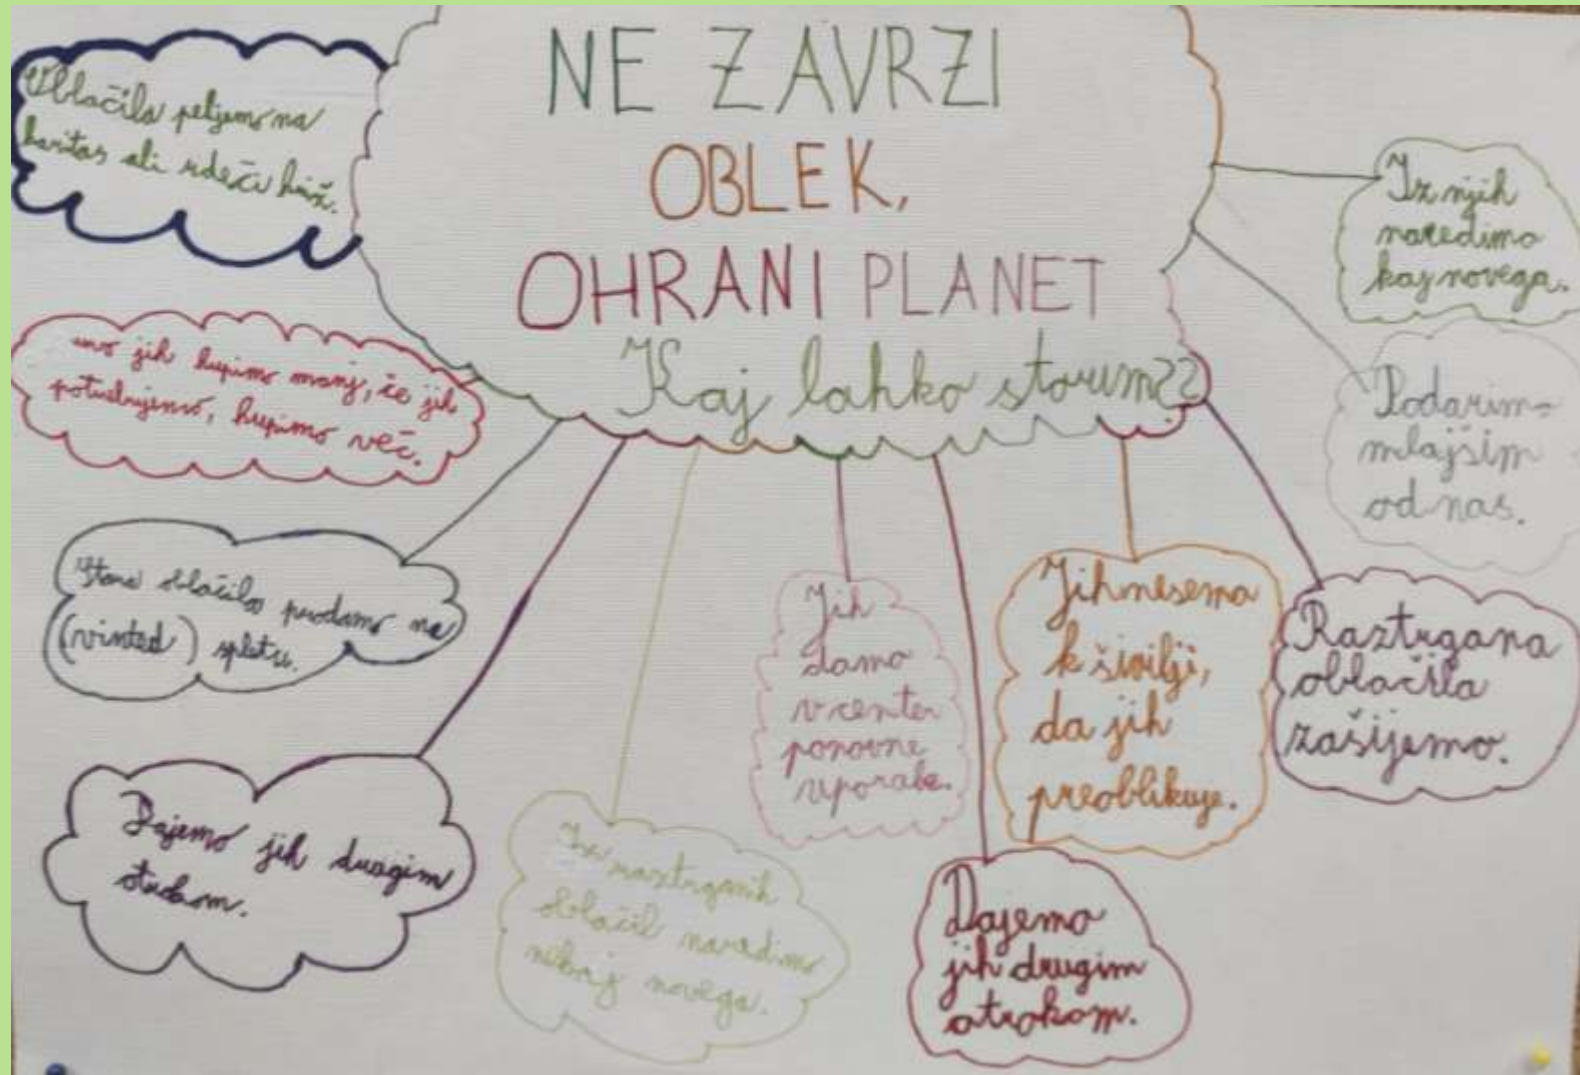 NE ZAVRZI
OBLEK,
OHRANI PLANET
Kaj lahko storim??
Oblačila peljemo na
karitas ali rdeči križ.
jih kupimo manj, če jih
potrebujemo, kupimo več.
Stara oblačila prodamo na
(vinted) spletu.
Dajemo jih drugim
otrokom.
Iz raztrganih
oblačil naredimo
nekaj novega.
Jih
damo
v center
ponovne
uporabe.
Dajemo
jih drugim
otrokom.
Jih nesemo
k šivilji,
da jih
preoblikuje.
Raztrgana
oblačila
zašijemo.
Podarimo
mlajšim
od nas.
Iz njih
naredimo
kaj novega.